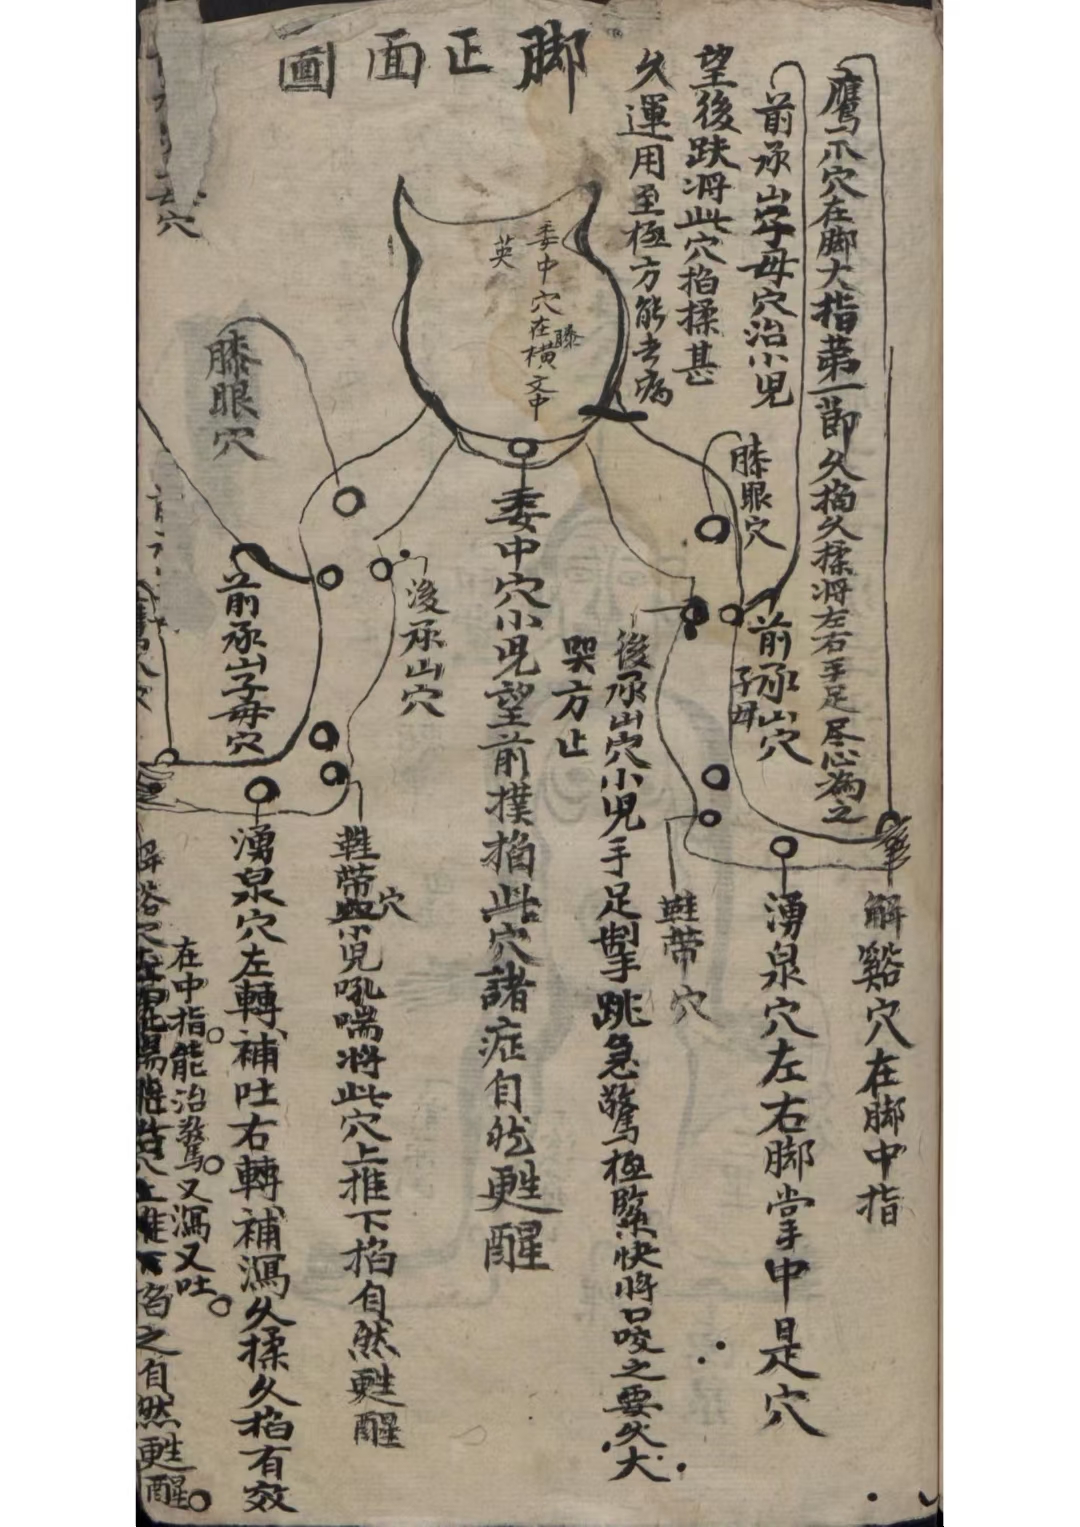 脚正面圖
鷹爪穴在脚大指第一節久掐久揉將左右手足尽心為之
前承山子母穴治小兒
望後跌将此穴掐揉甚
久運用至極方能去病
委中穴在膝横文中
英
膝眼穴
前承山穴
子母
解谿穴在脚中指
湧泉穴左右脚掌中是穴
鞋带穴
後承山穴小兒手足掣跳急驚極緊快將口咬之要久大
哭方止
委中穴小兒望前撲掐此穴諸症自然甦醒
後承山穴
鞋带穴小兒吼喘将此穴上推下掐自然甦醒
膝眼穴
前承山子母穴
湧泉穴左轉補吐右轉補瀉久揉久掐有效
在中指能治驚又瀉又吐
上推下掐之自然甦醒